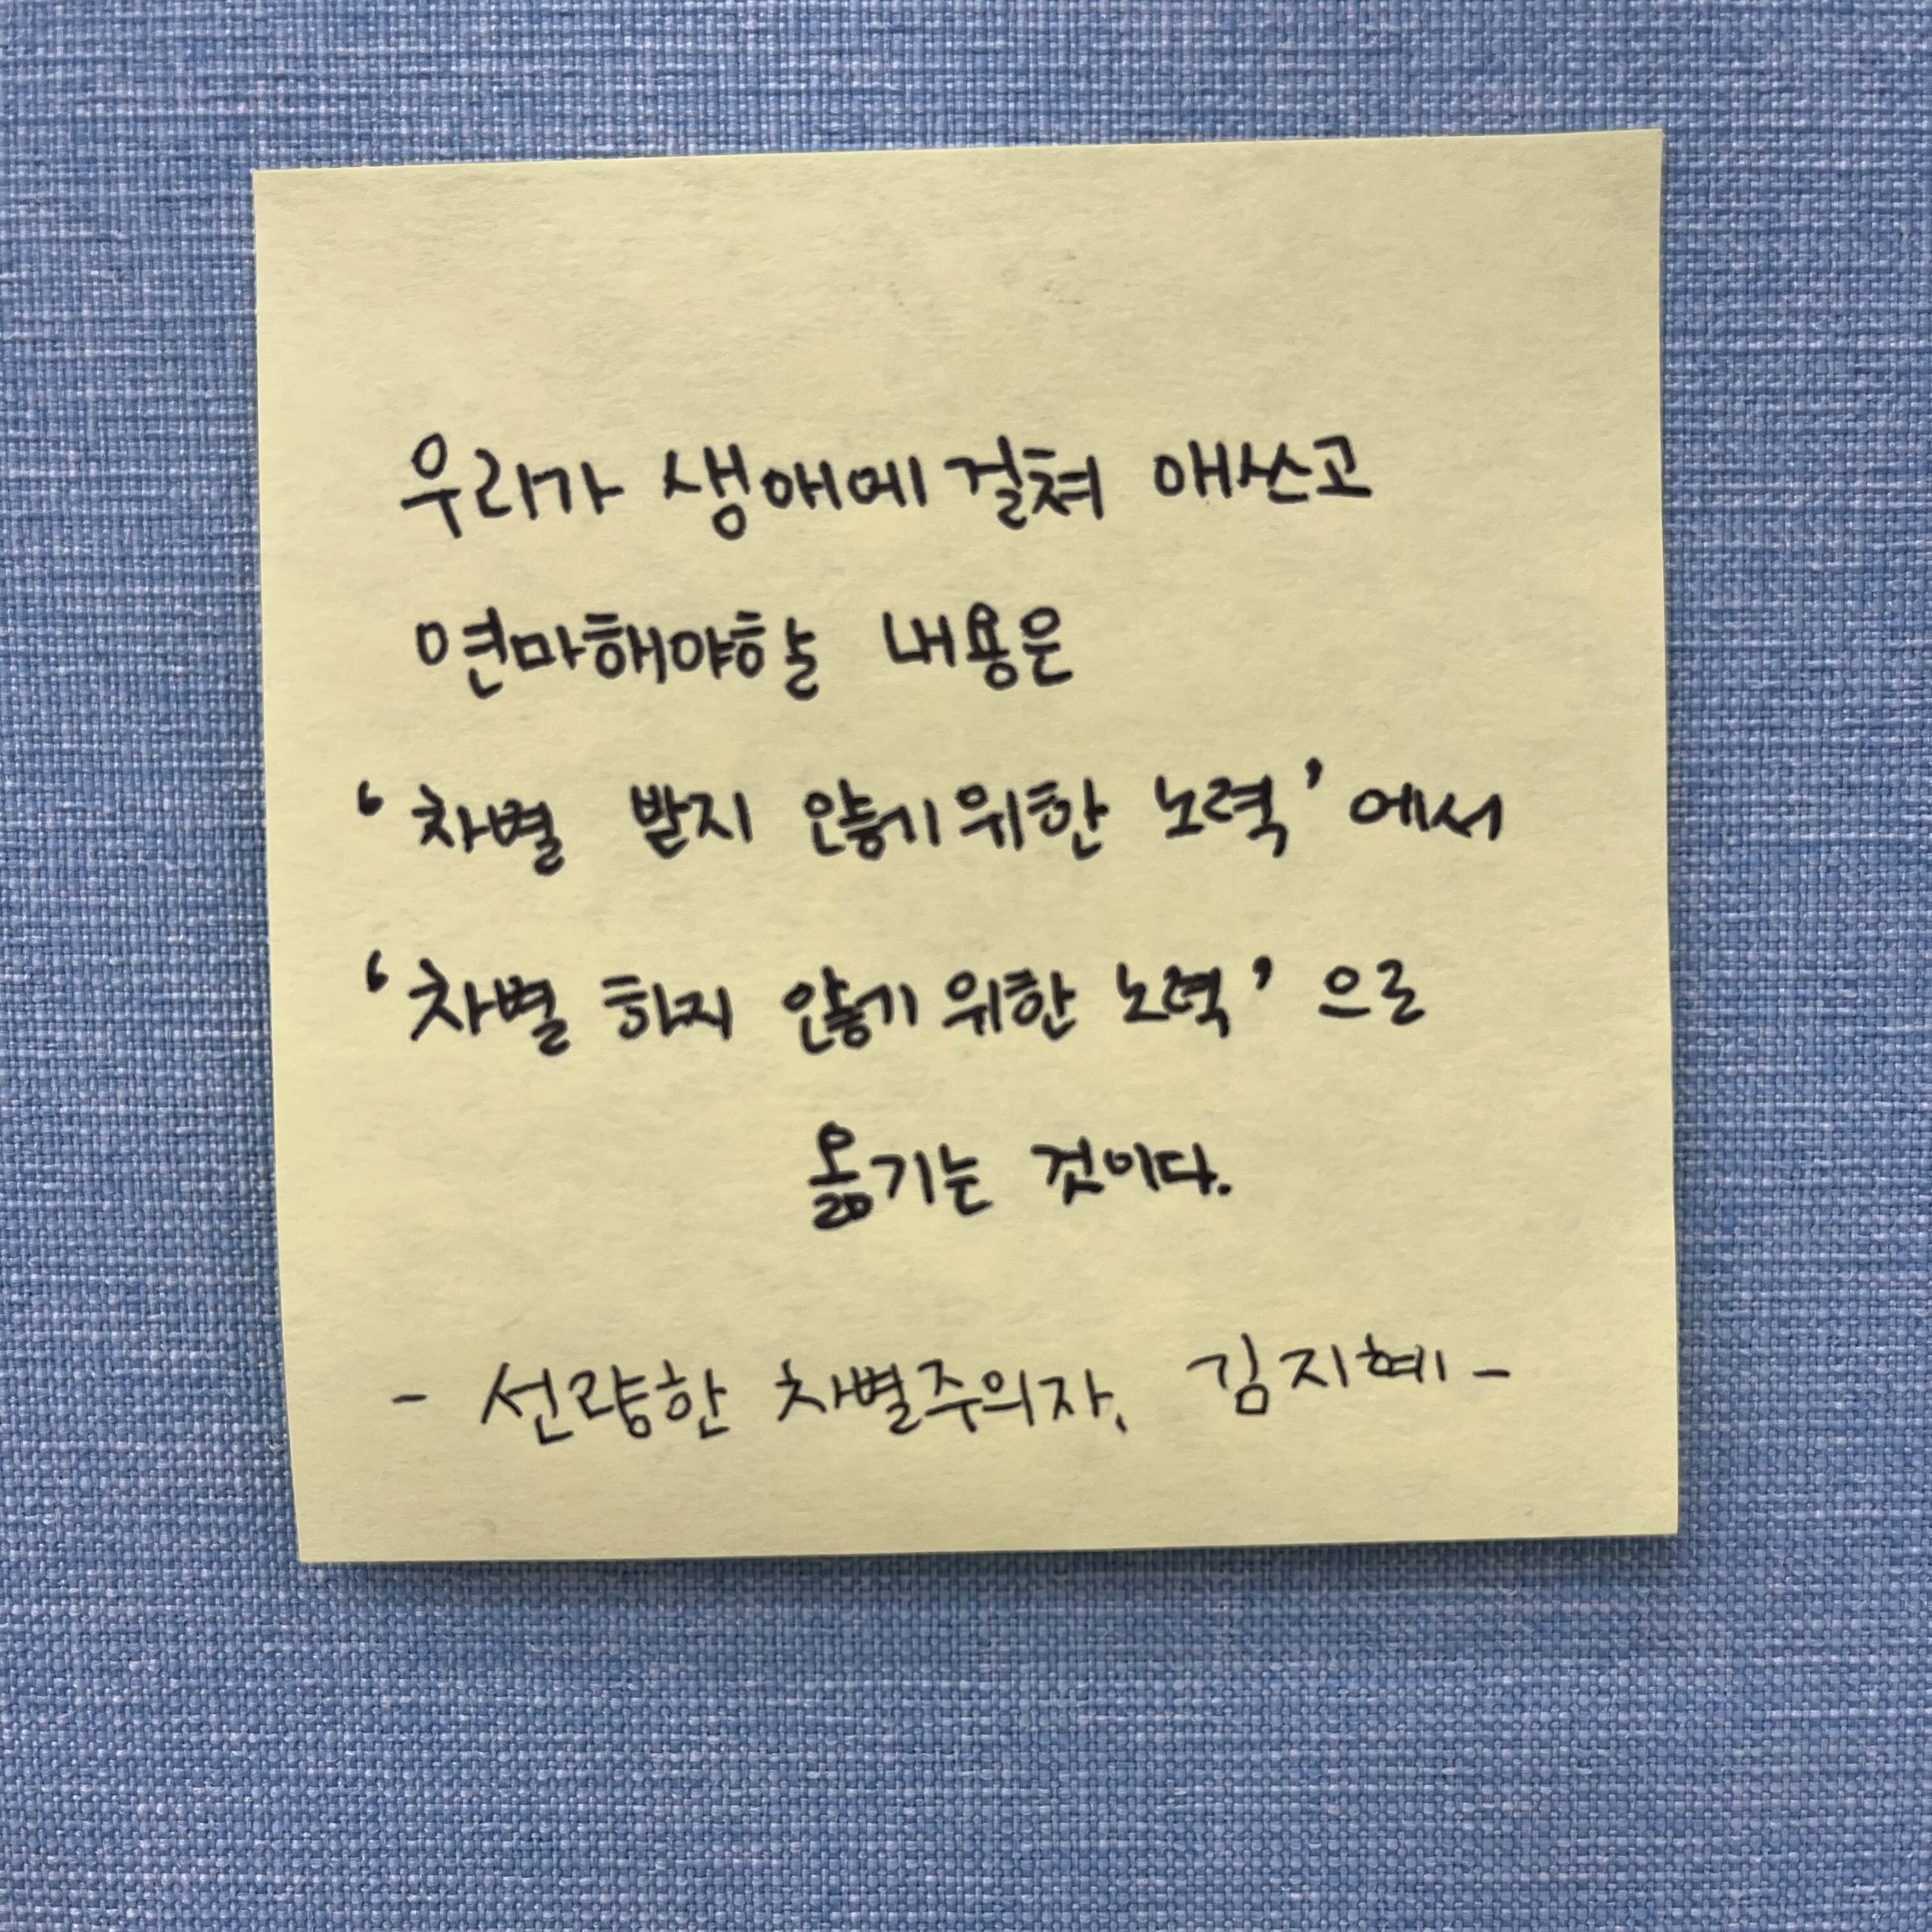 우리가 생애에 걸쳐 애쓰고
연마해야할 내용은
‘차별 받지 않기 위한 노력’에서
‘차별 하지 않기 위한 노력’으로
옮기는 것이다.
- 선량한 차별주의자, 김지혜 -